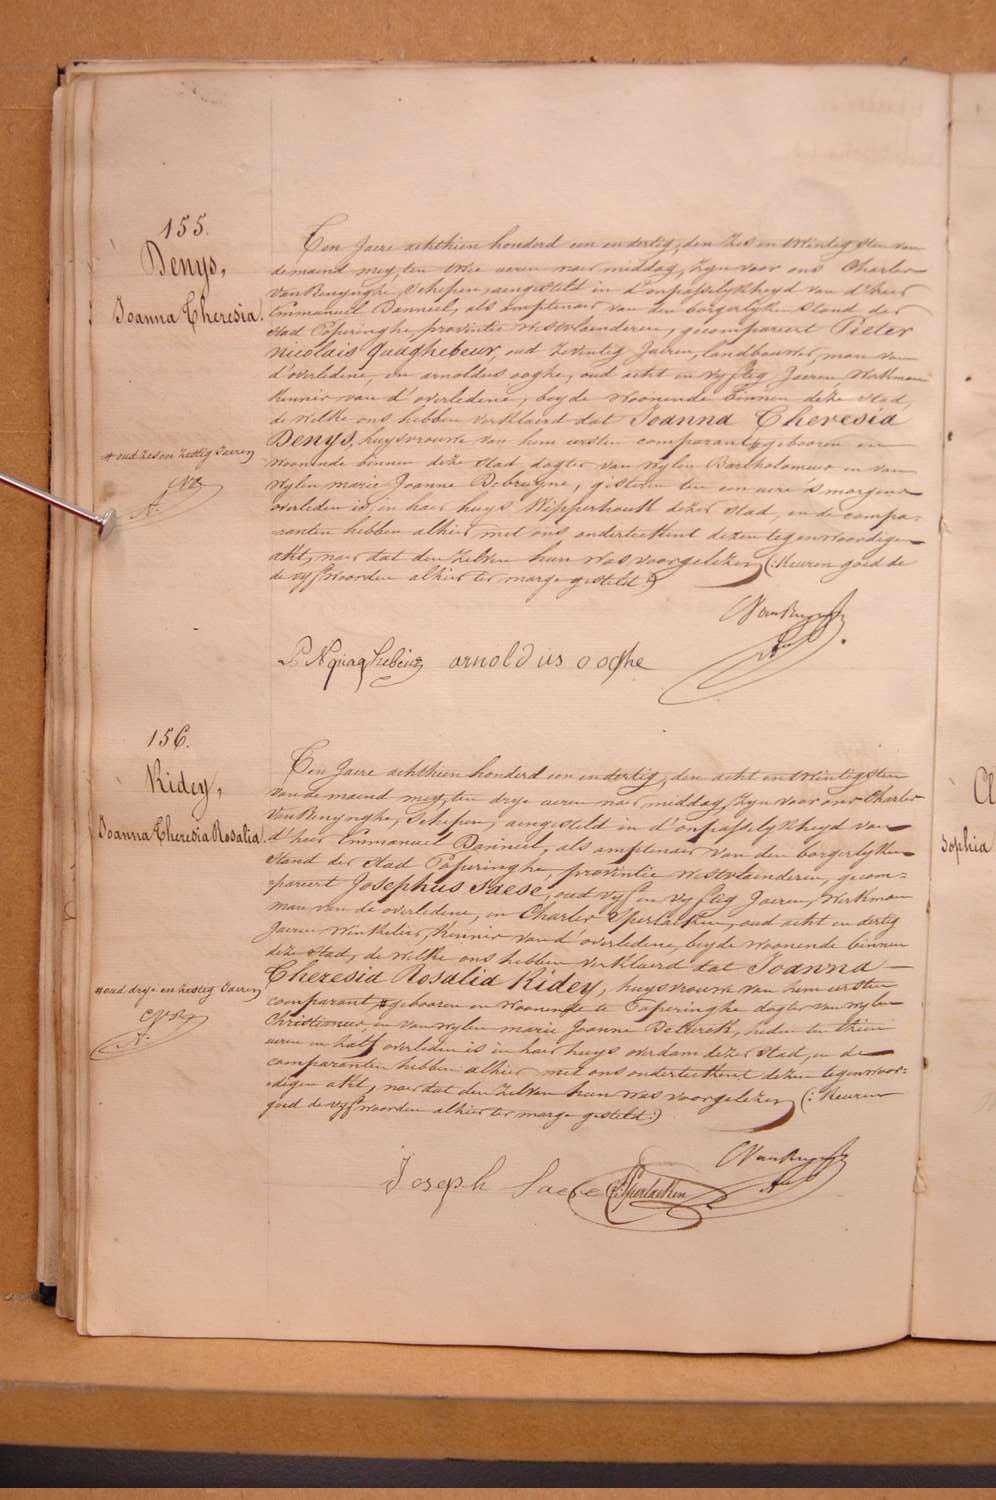 155.
Denys,
Joanna Theresia.
Ten Jaere achthien honderd een en dertig, den Zes en twintigsten van
de maend mey, ten twee ueren naer middag, Zyn voor ons Charles
VanRenynghe, Schepen, aengesteld in d'onpasselykheyd van d'heer
Emmanuel Danneel, als amptenaer van den borgerlyken stand der
stad Poperinghe, provintie Westvlaenderen, gecompareert Pieter
Nicolais Quaghebeur, oud Zeventig Jaeren, landbouwer, man van
d'overledene, en arnoldus ooghe, oud acht en vyftig Jaeren, Werkman
kenner van d'overledene, beyde Woonende binnen deze Stad,
de Welke ons hebben verklaerd dat Joanna Theresia
Denys, huysvrouwe van hem eersten comparant # gebooren en
Woonende binnen deze stad, dogter van Wylen Bartholomeus en van
Wylen marie Joanne Debruyne, gisteren ten een uere 's morgens
overleden is, in haer huys Wipperhoutk dezer stad, en de compa-
-ranten hebben alhier met ons onderteekent dezen tegenwoordigen
akt, naer dat den Zelven hun Was voorgelezen (: Keuren goed de
de vyf Woorden alhier ter marge gesteld :)
# oud Zes en Zestig Jaeren
P N quaghebeur arnoldus ooghe
156.
Ridey,
Joanna Theresia Rosalia.
Ten Jaere achthien honderd een en dertig, den acht en twintigsten
van de maend mey, ten drye ueren naer middag, Zyn voor ons Charles
VanRenynghe, Schepen, aengesteld in d'onpasselykheyd van
d'heer Emmanuel Danneel, als amptenaer van den borgerlyken
stand der stad Poperinghe, provintie Westvlaenderen, gecom-
-pareert Josephus Saese, oud vyf en vyftig Jaeren, Werkman
man van de overledene, en Charles Sperlaeken, oud acht en dertig
Jaeren Winkelier, kenner van d'overledene, beyde Woonende binnen
deze stad, de Welke ons hebben verklaerd dat Joanna
Theresia Rosalia Ridey, huysvrouwe van hem eersten
comparant, # gebooren en Woonende te Poperinghe dogter van Wylen
Christianus en van Wylen marie Joanne, heden ten thien
ueren en half overleden is in haer huys overdam dezer Stad, en de
comparanten hebben alhier met ons onderteekent dezen tegenwoor-
-digen akt, naer dat den Zelven hun Was voorgelezen (: Keuren
goed de vyf Woorden alhier ter marge gesteld :)
# oud drye en Zestig Jaeren
Joseph Saese Sperlaeken
Sophia